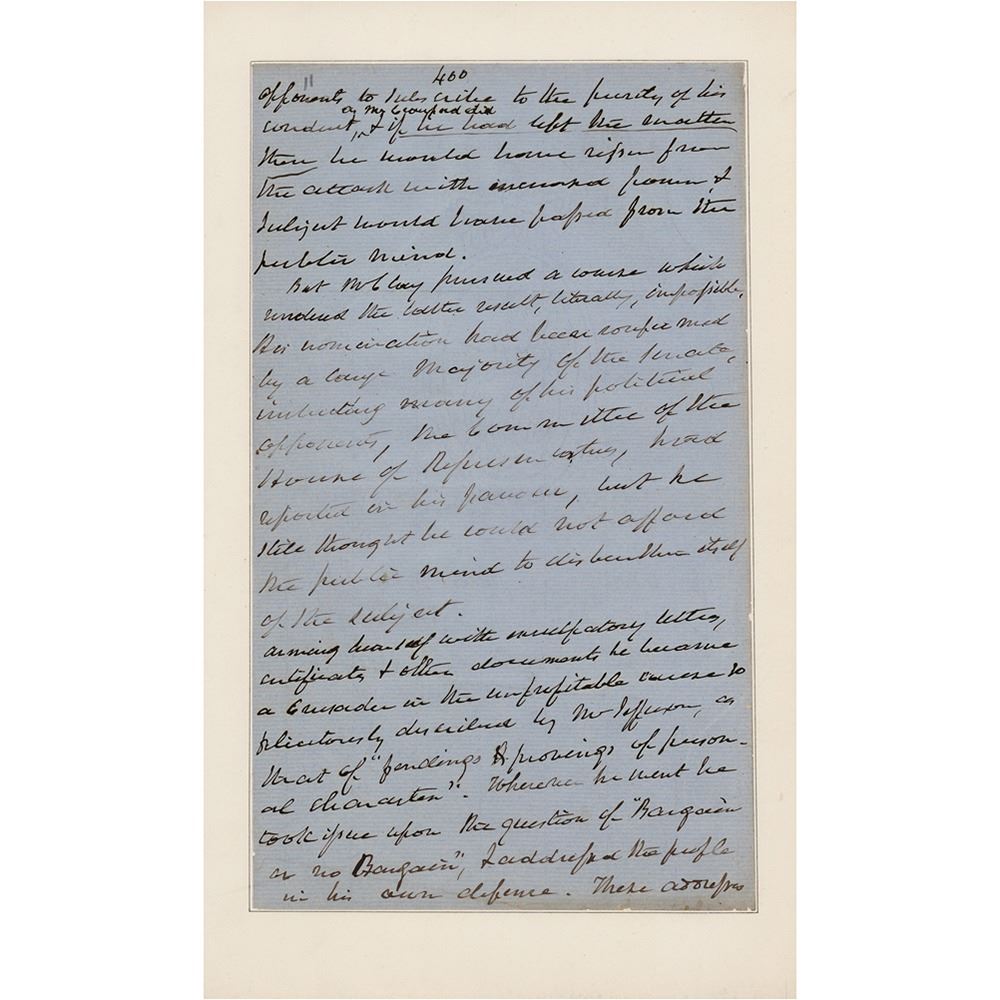 400
11
opponents to subscribe to the purity of his
as Mr Crawford did
conduct, & if he had left the matter
there he would have risen from
the attack with increased power &
subject would have passed from the
public mind.
But Mr Clay pursued a course which
rendered the latter result, literally, impossible.
His nomination had been confirmed
by a large Majority of the Senate,
including many of his political
opponents, the Committee of the
House of Representatives, had
reported in his favour, but he
still thought he could not afford
the public mind to disburthen itself
of the subject.
arming himself with exculpatory letters,
certificates & other documents he became
a Crusader in the unprofitable course so
felicitously described by Mr Jefferson, as
that of "fendings & provings of person-
al character". Wherever he went he
took issue upon the question of "Bargain
or no Bargain", & addressed the people
in his own defense. These addresses